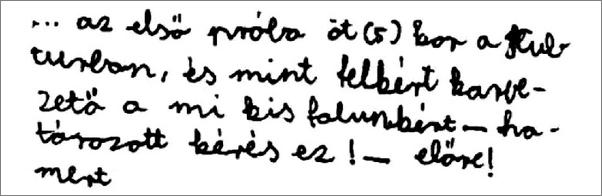 ... az első próba öt (5) kor a Kul-
turban, és mint felkért karve-
zető a mi kis falunkért — ha-
tározott kérés ez! — előre!
mert